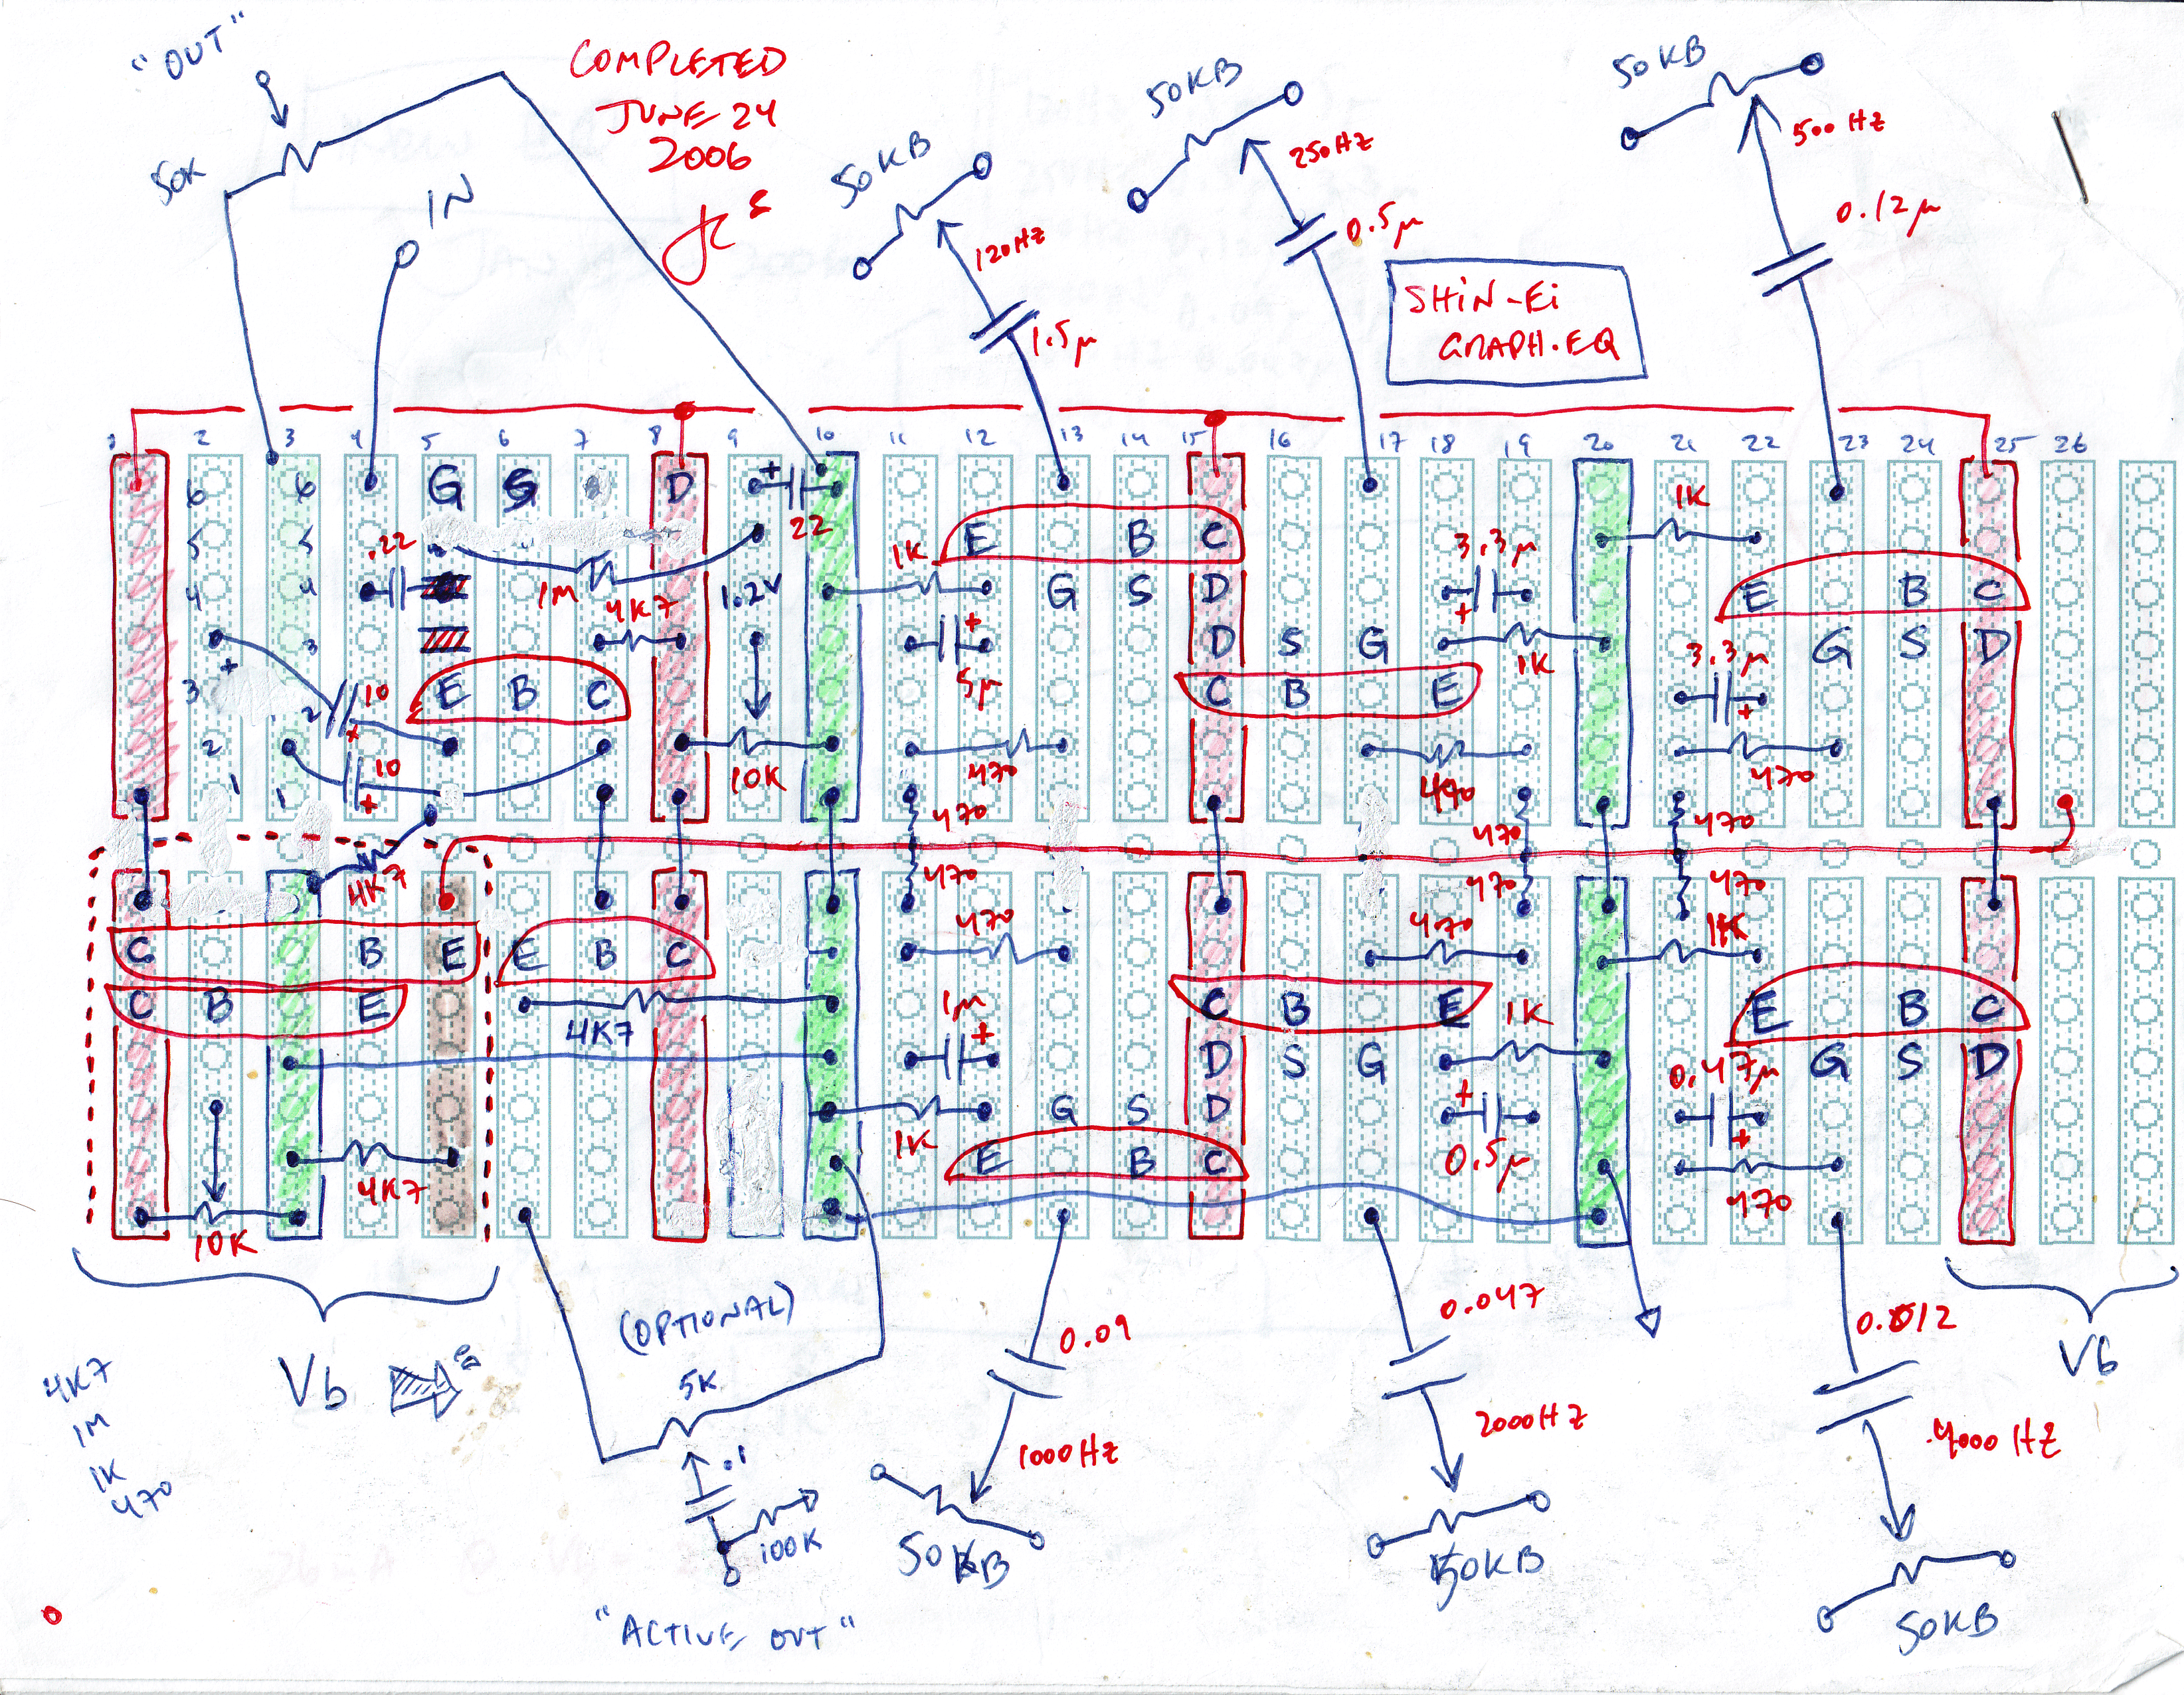 "OUT"
COMPLETED
JUNE 24
2006
50K
IN
50KB
120HZ
1.5µ
50KB
250HZ
0.5µ
50KB
500HZ
0.12µ
SHiN-Ei
GRAPH.EQ
1 2 3 4 5 6 7 8 9 10 11 12 13 14 15 16 17 18 19 20 21 22 23 24 25 26
6 6 G S D + 22
5 5 .22
E B C
1K
3.3µ +
1K
4 4 1M 4K7 1.2V
G S D
E B C
3
+
5µ
D S G
1K
3.3µ
+
G S D
3 2 + 10
+
E B C
C B E
2 10
+
10K
470
490
470
1 1
470
470
470
4K7
470
470
470
C B E
E B C
470
470
1K
C B E
4K7
1µ
+
C B E
1K
E B C
D S G
0.47µ
+
G S D
1K
G S D
+
0.5µ
4K7
E B C
470
10K
Vb
(OPTIONAL)
5K
.1
100K
"ACTIVE OUT"
4K7
1M
1K
470
0.09
1000HZ
50KB
0.047
2000HZ
50KB
0.012
4000HZ
50KB
Vb